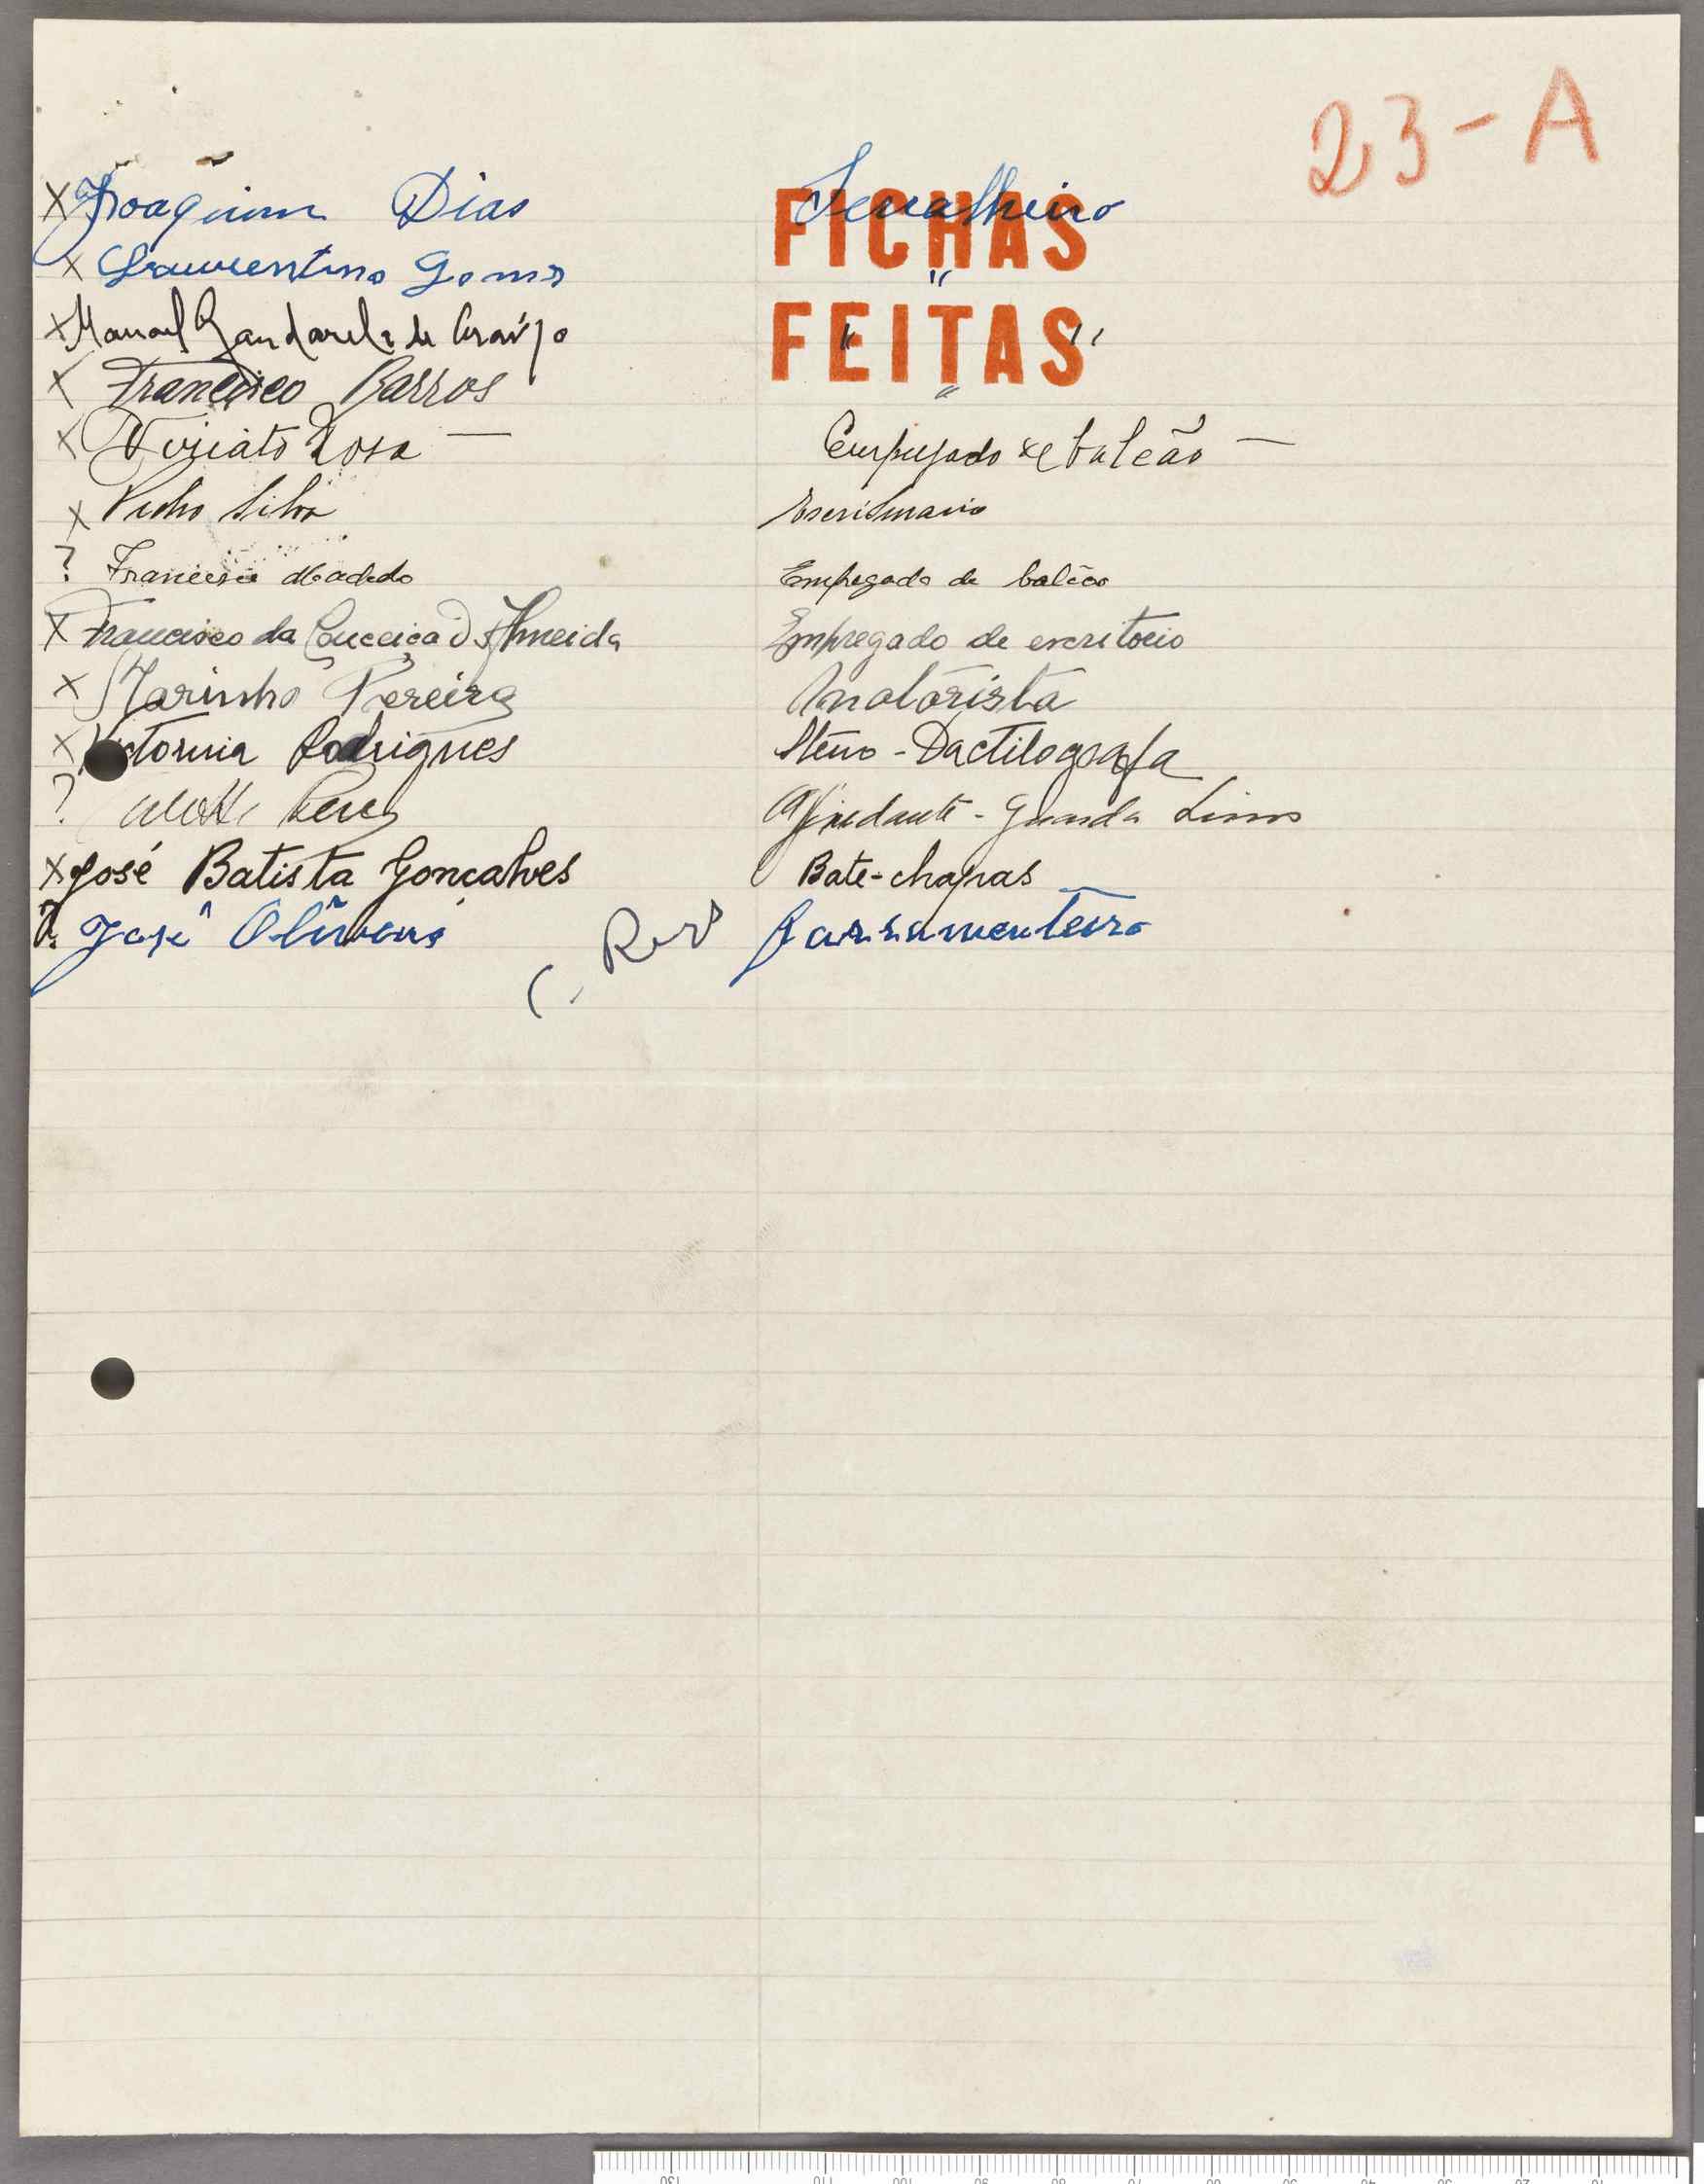 23-A
X Joaquim Dias Serralheiro
FICHAS
X Laurentino Gomes "
FEITAS
X Manoel Gandarela de Araújo " "
X Francisco Barros "
X Viriato Rosa — Empregado de balcão —
X Pinho Silva Escriturario
? Francisco Macedo Empregado de balcão
X Francisco da Conceição d'Almeida Empregado de escritorio
X Marinho Pereira Motorista
X Victoria Rodrigues Steno-Dactilografa
? Ajudante-Guarda Livros
X José Batista Gonçalves Bate-chapas
? José Oliveira